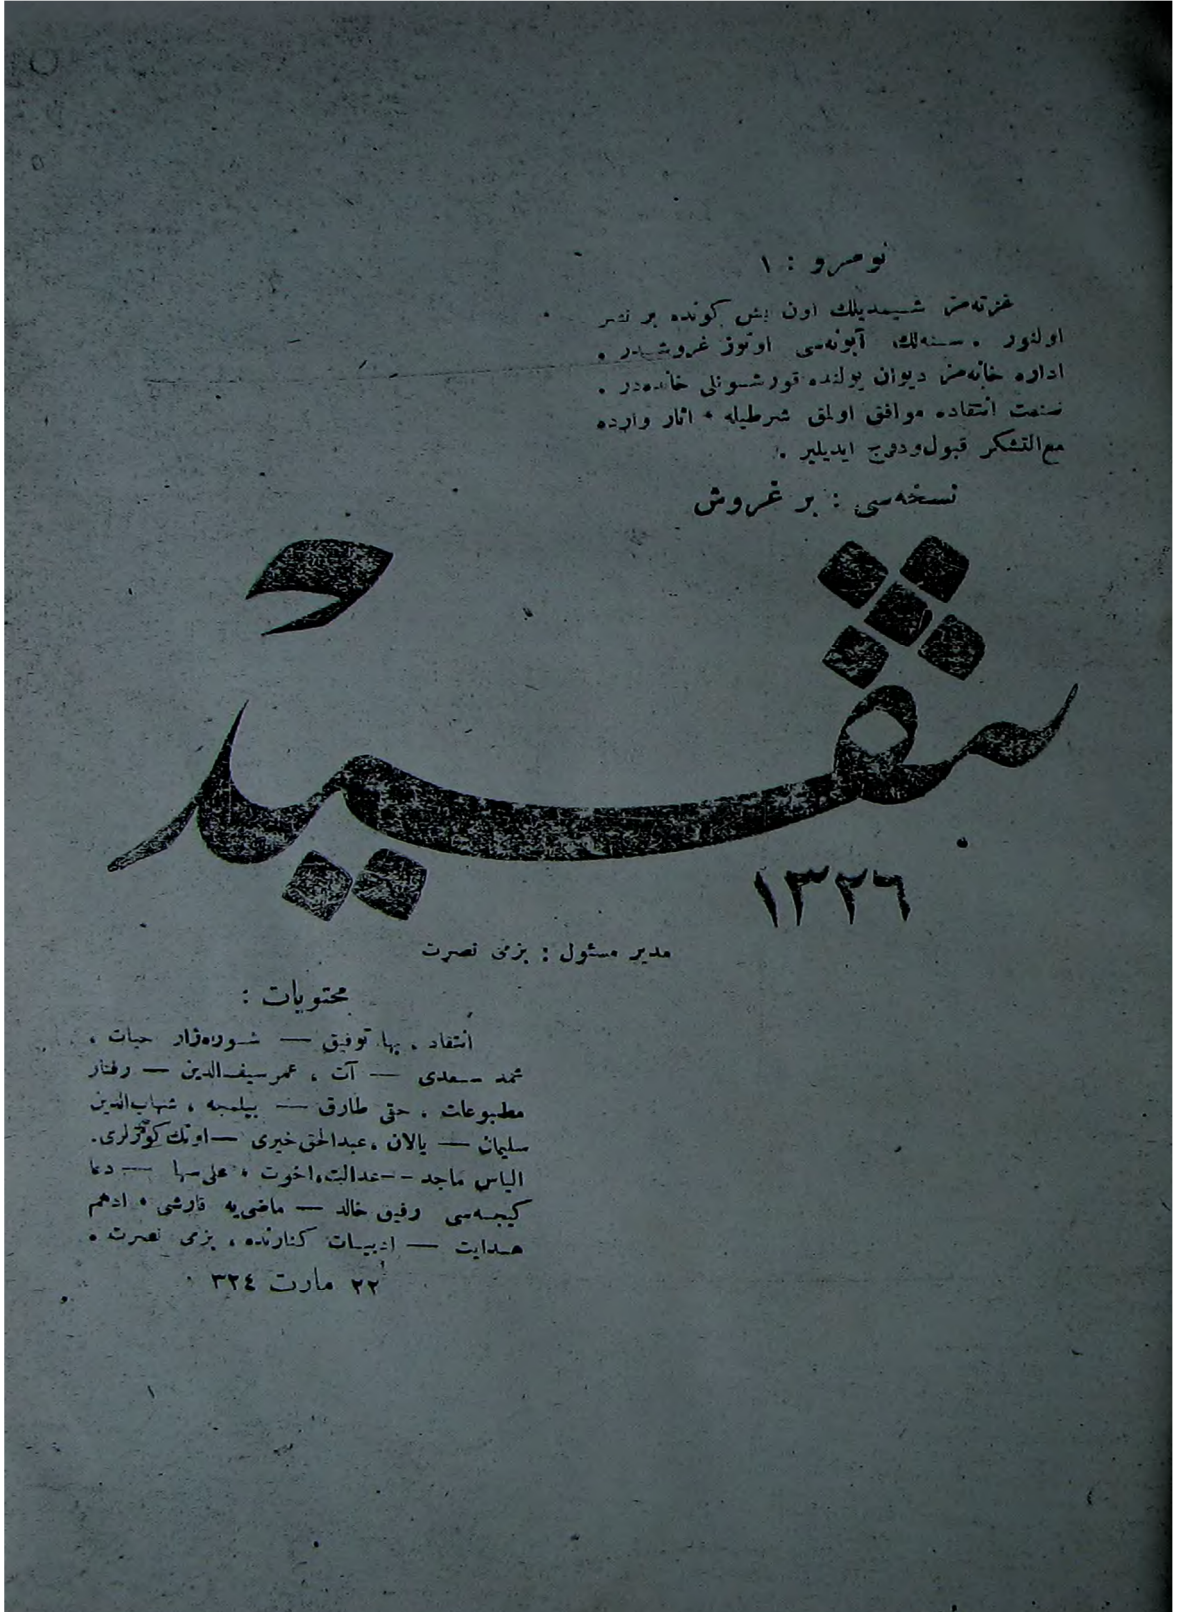 نومرو : ١
غزته‌مز شیمدیلك اون بش كونده بر نشر
اولنور . سنه‌لك آبونه‌سی اوتوز غروشدر .
اداره خانه‌مز دیوان یولنده قورشونلی خانده‌در .
صنعت انتقاده موافق اولمق شرطیله ، اثار وارده
مع‌التشكر قبول ودرج ایدیلیر .
نسخه‌سی : بر غروش
تنقید
١٣٢٦
مدیر مسئول : بزمی نصرت
محتویات :
انتقاد ، بها توفیق — شوره‌زار حیات ،
محمد سعدی — آت ، عمر سیف‌الدین — رفتار
مطبوعات ، حقی طارق — بیلمجه ، شهاب‌الدین
سلیمان — یالان ، عبدالحق خیری — اونك كوزلری .
الیاس ماجد -- عدالت ، اخوت ، علی سها — دعا
كیجه‌سی رفیق خالد — ماضی‌یه قارشی ، ادهم
هدایت — ادبیات كنارنده ، بزمی نصرت .
٢٢ مارت ٣٢٤